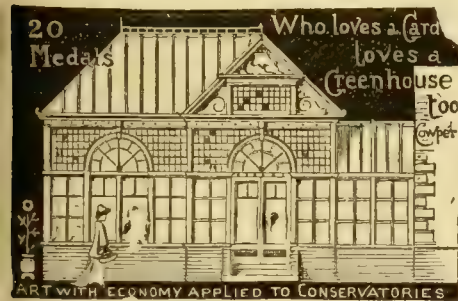 20
Medals
Who loves a Gard
loves a
Greenhouse
Too
Cowper
ART WITH ECONOMY APPLIED TO CONSERVATORIES